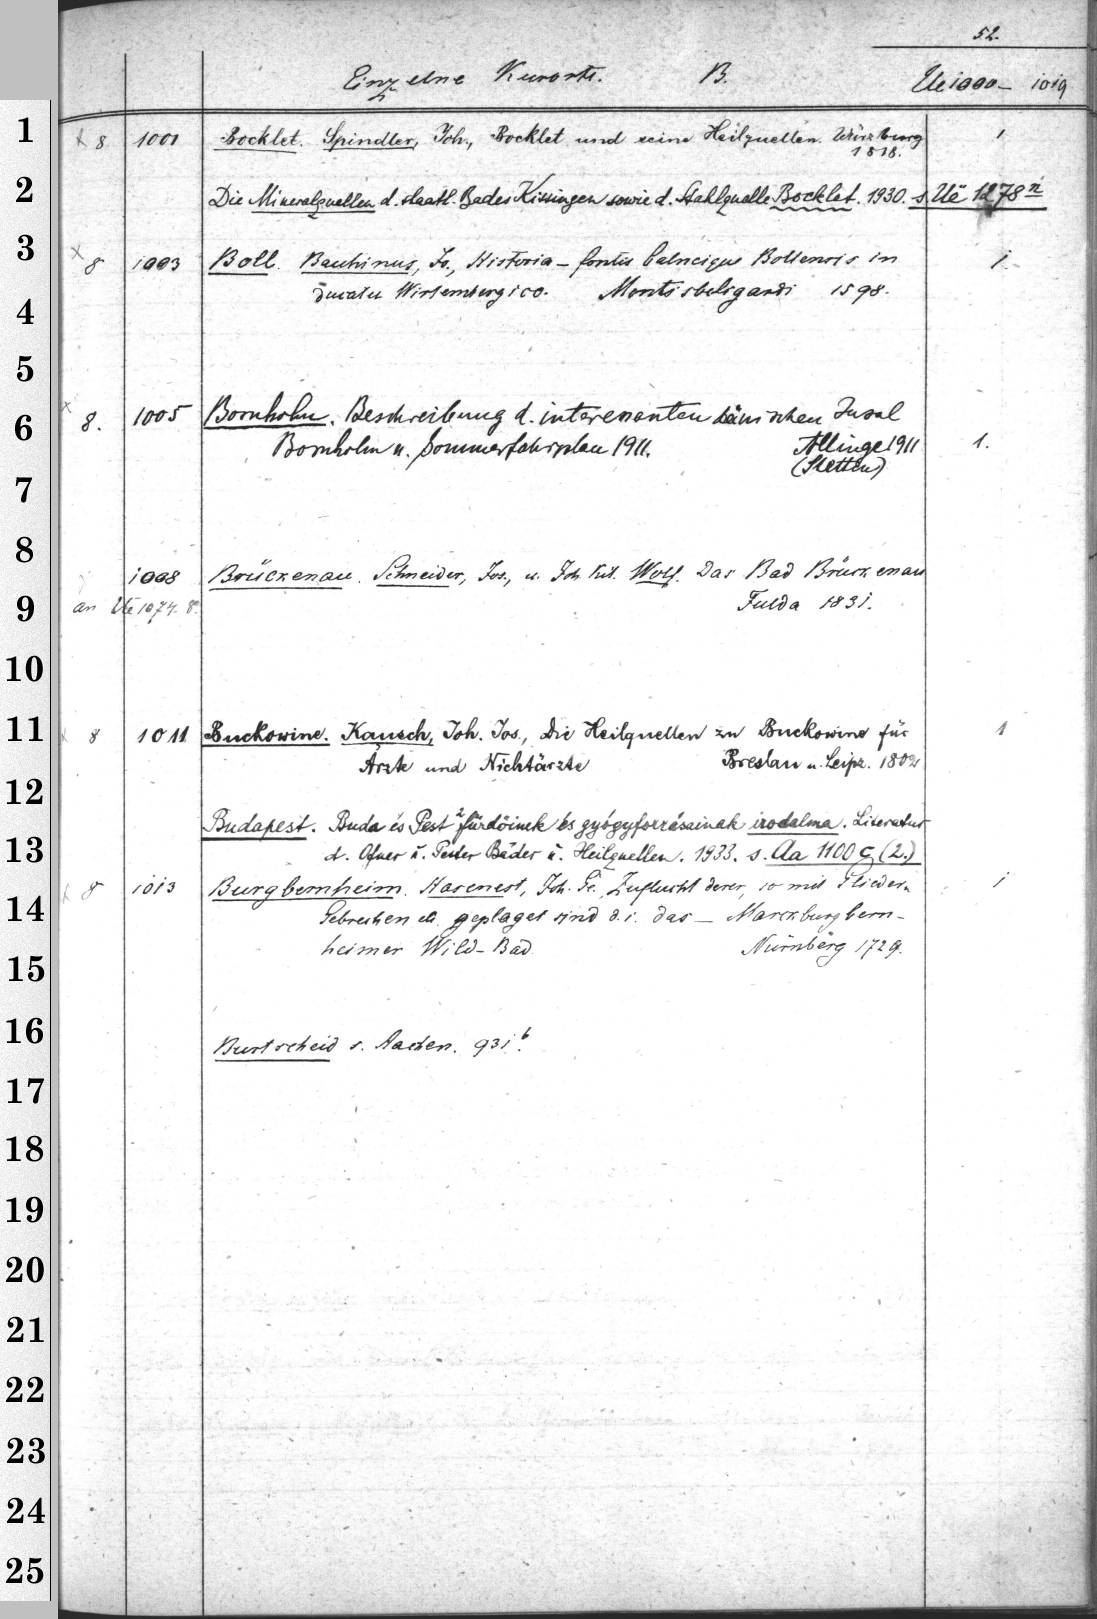 52.
Einzelne Kurorte. B. Ue 1000 – 1019
1 x 8 1001 Bocklet. Spindler, Joh., Bocklet und seine Heilquellen. Würzburg 1
1818.
2 Die Mineralquellen d. staatl. Bades Kissingen sowie d. Stahlquelle Bocklet. 1930. s. Ue 1278 n
3 x 8 1003 Boll. Bauhinus, Jo., Historia – fontis balneique Bollensis in 1.
ducatu Wirtembergico. Montisbelsgardi 1598.
4
5
6 x 8. 1005 Bornholm. Beschreibung d. interessanten dänischen Insel
Bornholm u. Sommerfahrplan 1911. Allinge 1911 1.
(Stettin)
7
8
1008 Brückenau. Schneider, Jos., u. Joh. Wolf. Das Bad Brückenau
9 an Ue 1074. 8°. Fulda 1831.
10
11 x 8 1011 Buckowine. Kausch, Joh. Jos., Die Heilquellen zu Buckowine für 1
Ärzte und Nichtärzte Breslau u. Leipz. 1802
12
Budapest. Buda és Pest fürdőinek és gyógyforrásainak irodalma. Literatur
13 d. Ofner u. Pester Bäder u. Heilquellen. 1933. s. Aa 1100 ç (2.)
x 8 1013 Burgbernheim. Hasenest, Joh. Ge., Zuflucht derer, so mit Glieder- 1
14 Gebrechen etc. geplaget sind d. i. das – Marckburgbern-
heimer Wild-Bad. Nürnberg 1729.
15
16 Burtscheid s. Aachen. 931 b.
17
18
19
20
21
22
23
24
25